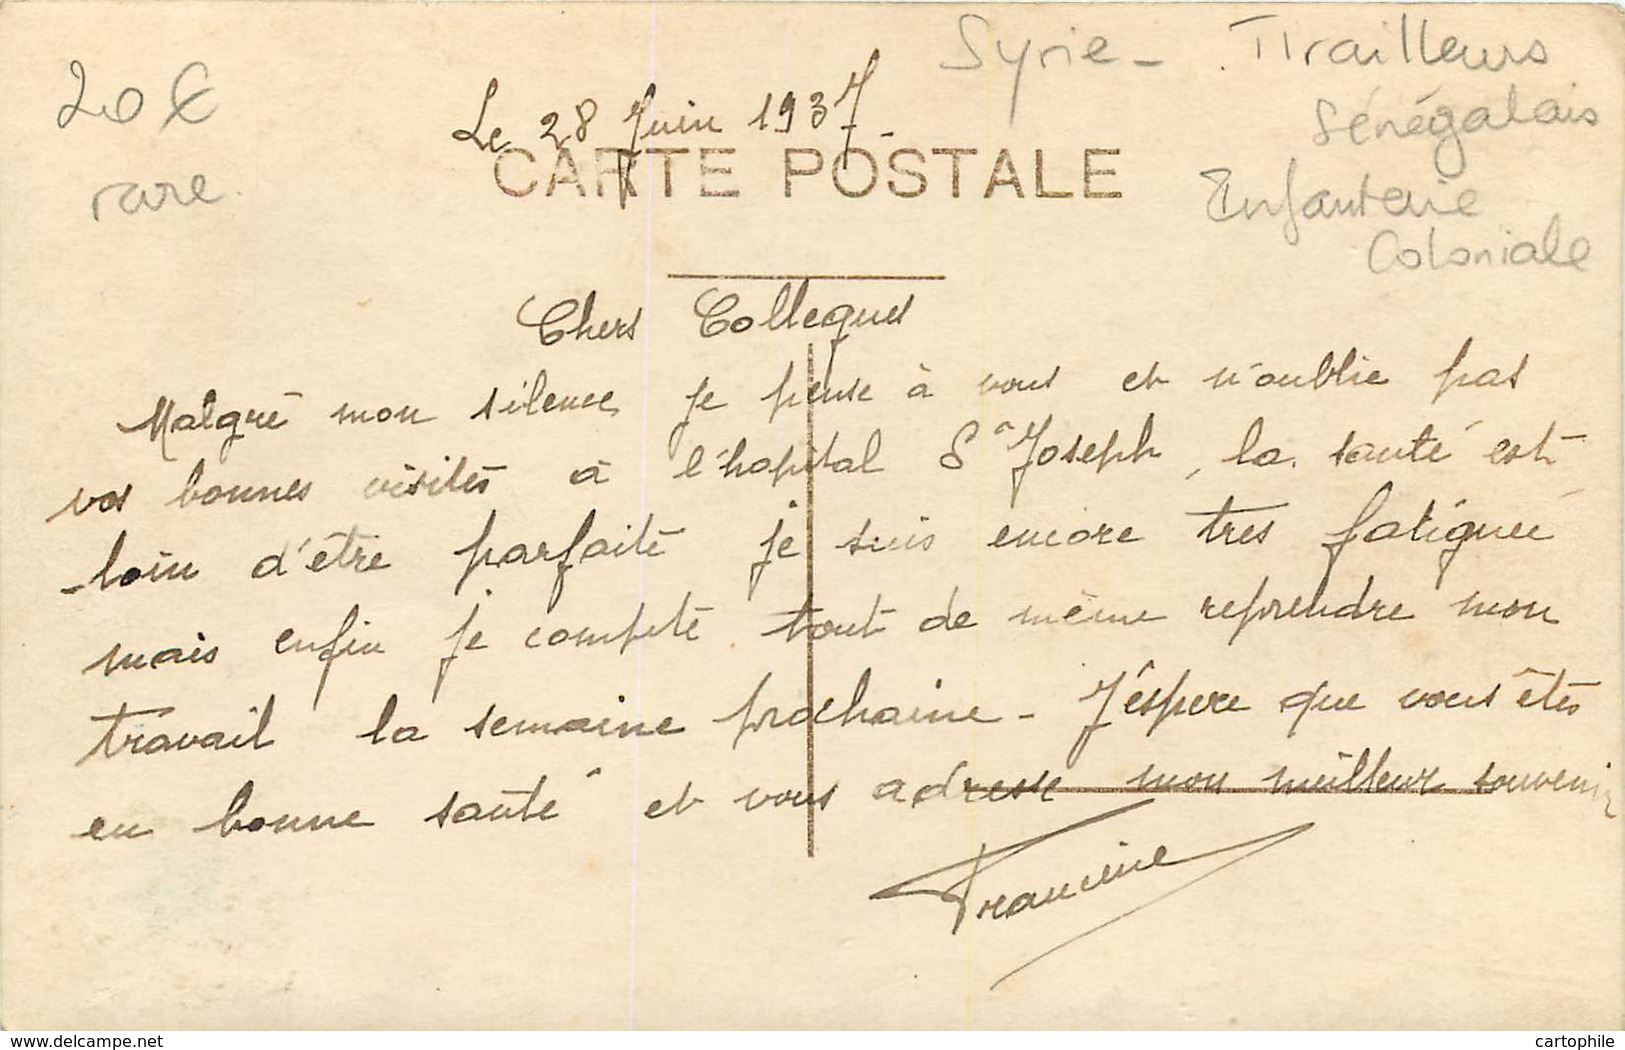 20€
rare
Syrie - Tirailleurs
Sénégalais
Infanterie
Coloniale
Le 28 Juin 1937.
CARTE POSTALE
Chers Collegues
Malgré mon silence je pense à vous et n'oublie pas
vos bonnes visites à l'hopital St Joseph, la santé est
loin d'être parfaite je suis encore tres fatiguée
mais enfin je compte tout de même reprendre mon
travail la semaine prochaine - J'éspere que vous êtes
en bonne santé et vous adresse mon meilleur souvenir
Francine
delcampe.net
cartophile